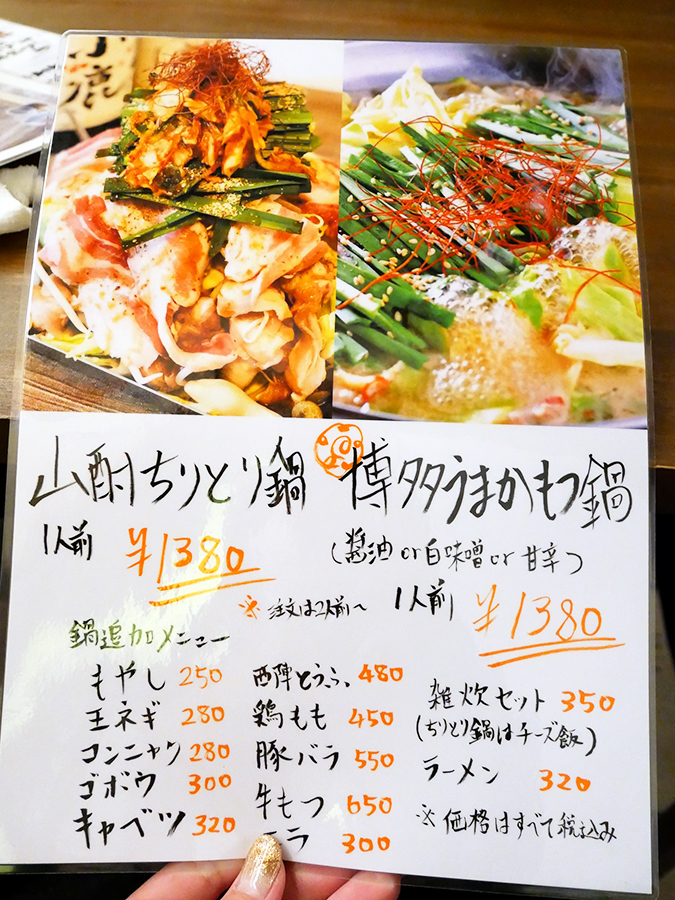 山酌ちりとり鍋
1人前 ¥1380
博多うまかもつ鍋
(醤油or白味噌or甘辛)
1人前 ¥1380
※注文は2人前〜
鍋追加メニュー
もやし 250
玉ネギ 280
コンニャク 280
ゴボウ 300
キャベツ 320
西陣とうふ 480
鶏もも 450
豚バラ 550
牛もつ 650
ニラ 300
雑炊セット 350
(ちりとり鍋はチーズ飯)
ラーメン 320
※価格はすべて税込み